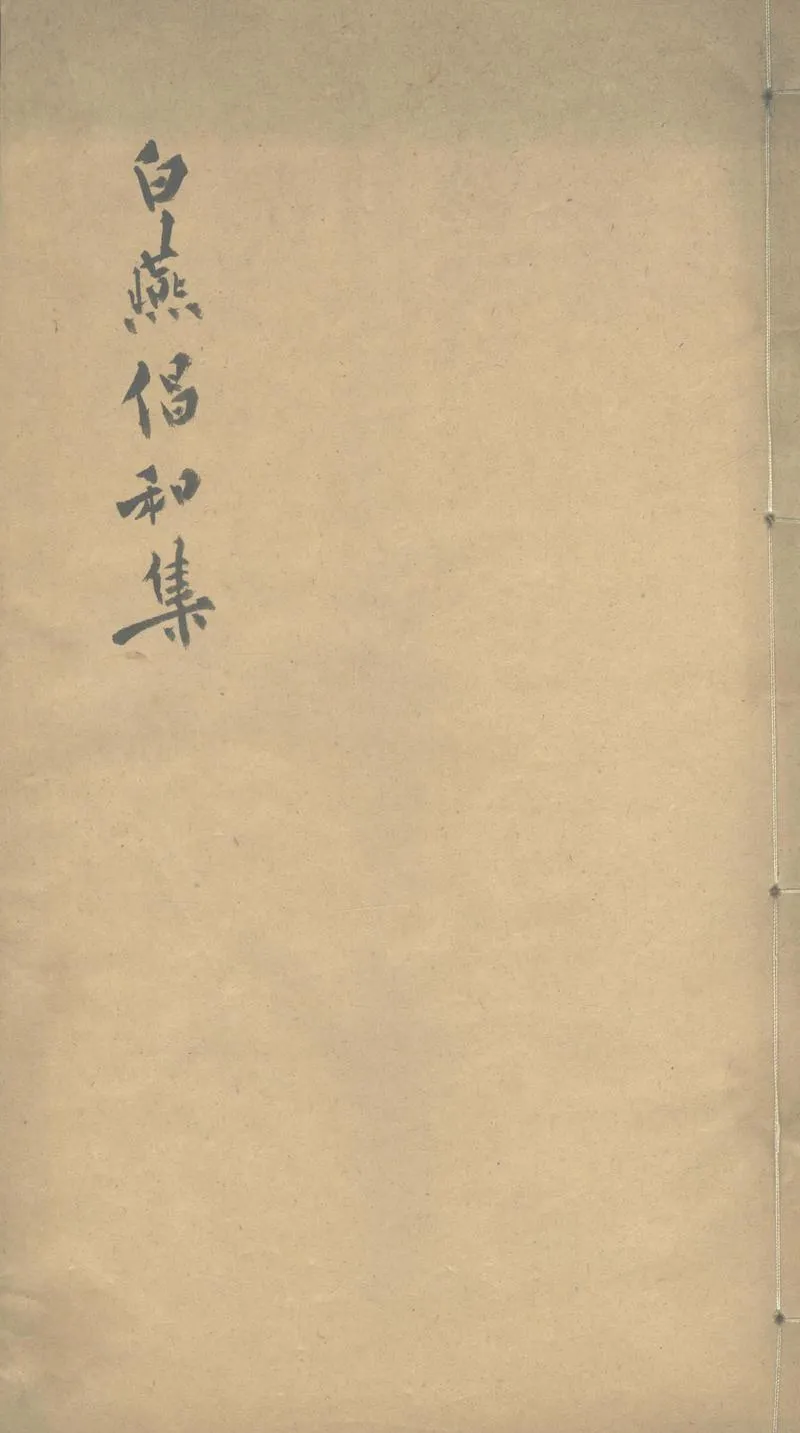 白燕倡和集